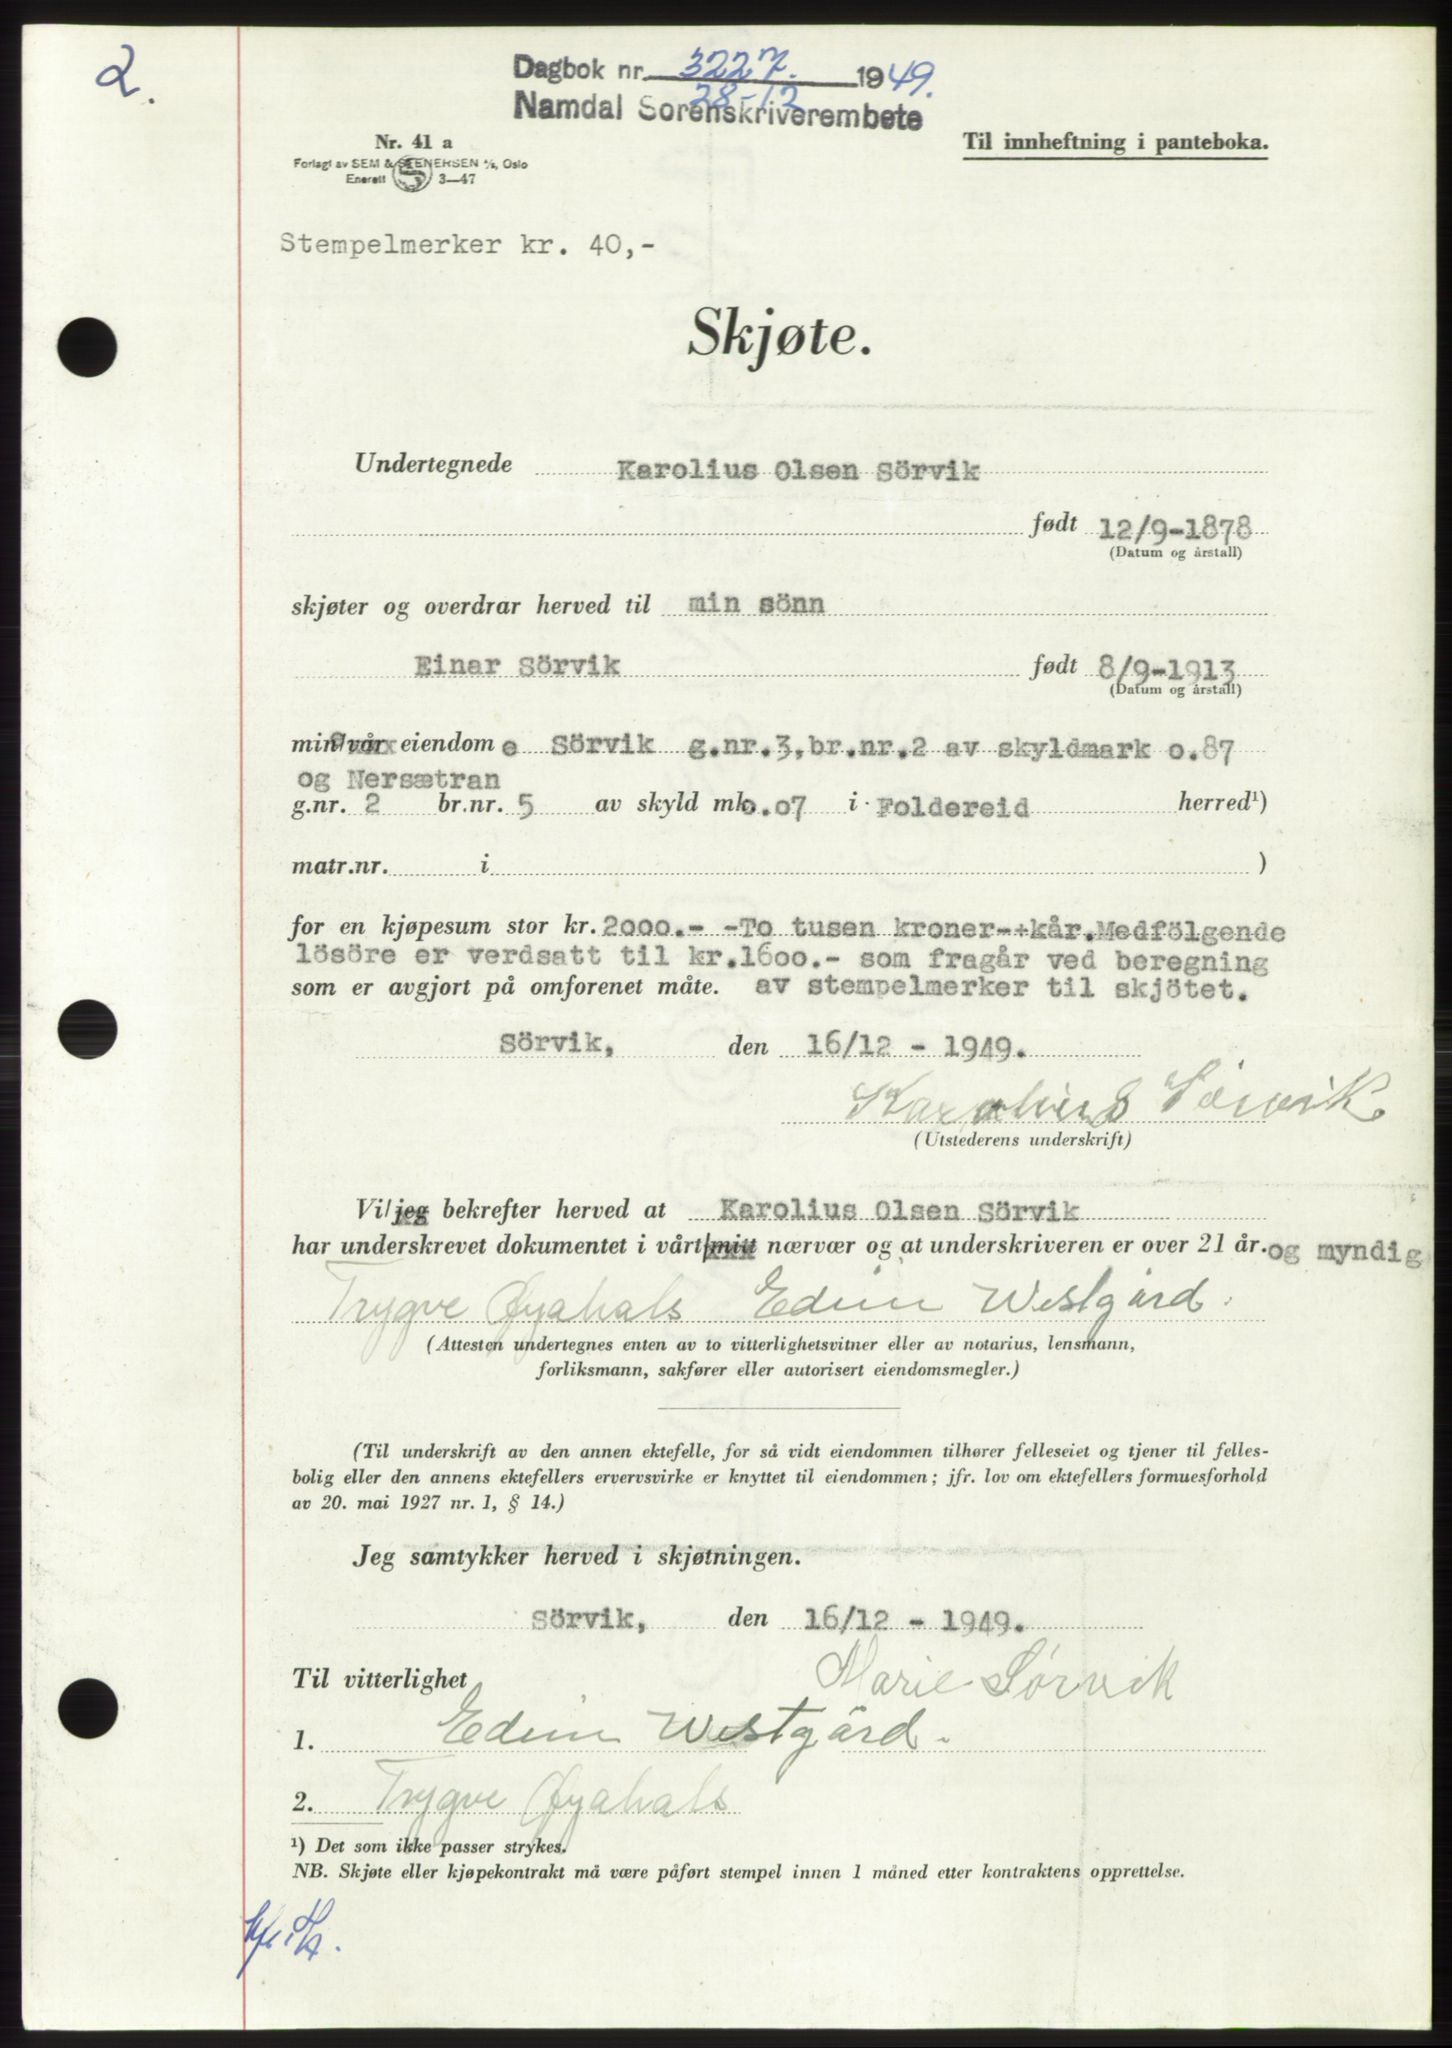 2.
Dagbok nr. 3227. 1949.
28-12
Namdal Sorenskriverembete
Nr. 41 a
Forlagt av SEM & STENERSEN A/S, Oslo
Enerett S 3—47
Til innheftning i panteboka.
Stempelmerker kr. 40,-
Skjøte.
Undertegnede Karolius Olsen Sörvik
født 12/9-1878
(Datum og årstall)
skjøter og overdrar herved til min sönn
Einar Sörvik født 8/9-1913
(Datum og årstall)
min/vår eiendom e Sörvik g.nr.3,br.nr.2 av skyldmark o.87
og Nersætran
g.nr. 2 br.nr. 5 av skyld mk o.07 i Foldereid herred¹)
matr.nr. i )
for en kjøpesum stor kr. 2000.- -To tusen kroner-+kår.Medfölgende
lösöre er verdsatt til kr.1600.- som fragår ved beregning
som er avgjort på omforenet måte. av stempelmerker til skjötet.
Sörvik, den 16/12 - 1949.
Karolius Sörvik
(Utstederens underskrift)
Vi/jeg bekrefter herved at Karolius Olsen Sörvik
har underskrevet dokumentet i vårt/mitt nærvær og at underskriveren er over 21 år. og myndig
Trygve Øyahals Edin Westgård.
(Attesten undertegnes enten av to vitterlighetsvitner eller av notarius, lensmann,
forliksmann, sakfører eller autorisert eiendomsmegler.)
(Til underskrift av den annen ektefelle, for så vidt eiendommen tilhører felleseiet og tjener til felles-
bolig eller den annens ektefellers ervervsvirke er knyttet til eiendommen; jfr. lov om ektefellers formuesforhold
av 20. mai 1927 nr. 1, § 14.)
Jeg samtykker herved i skjøtningen.
Sörvik, den 16/12 - 1949.
Til vitterlighet Marie Sørvik
1. Edin Westgård.
2. Trygve Øyahals
¹) Det som ikke passer strykes.
NB. Skjøte eller kjøpekontrakt må være påført stempel innen 1 måned etter kontraktens opprettelse.